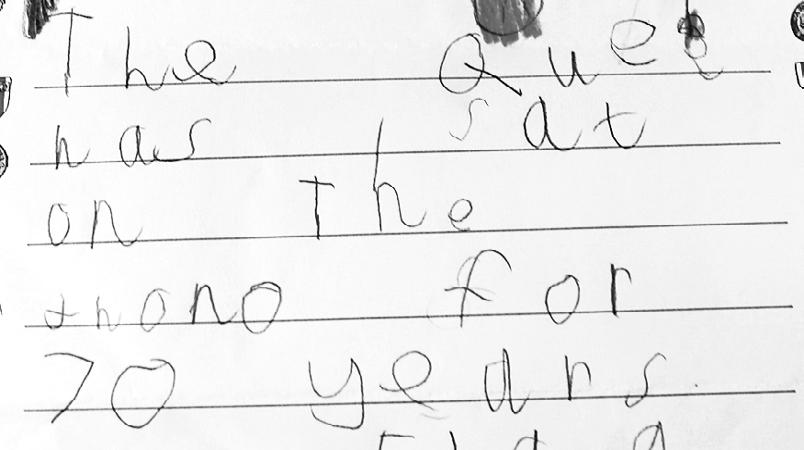 The Quee
has sat
on The
thono for
70 years.